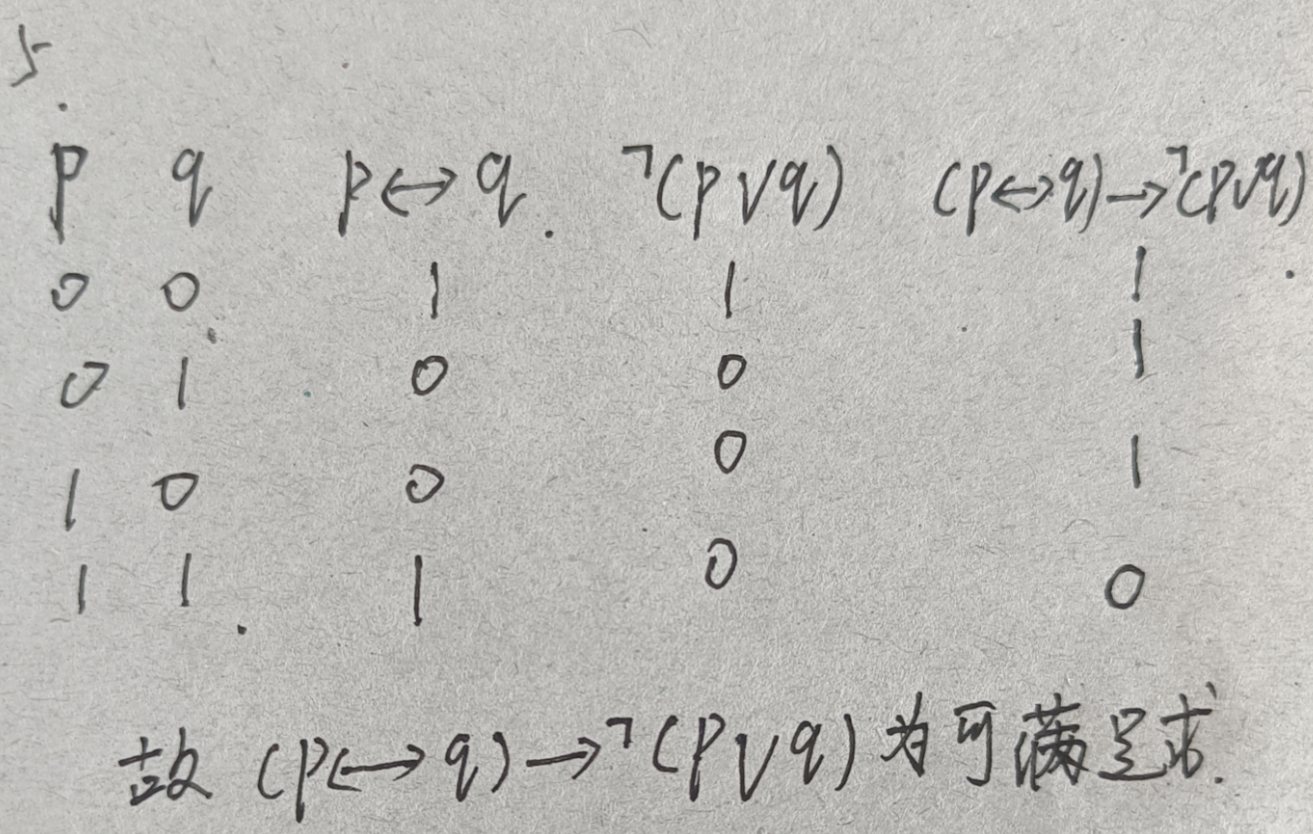 5.
p q p↔q ¬(p∨q) (p↔q)→¬(p∨q)
0 0 1 1 1
0 1 0 0 1
1 0 0 0 1
1 1 1 0 0
故 (p↔q)→¬(p∨q)为可满足式.